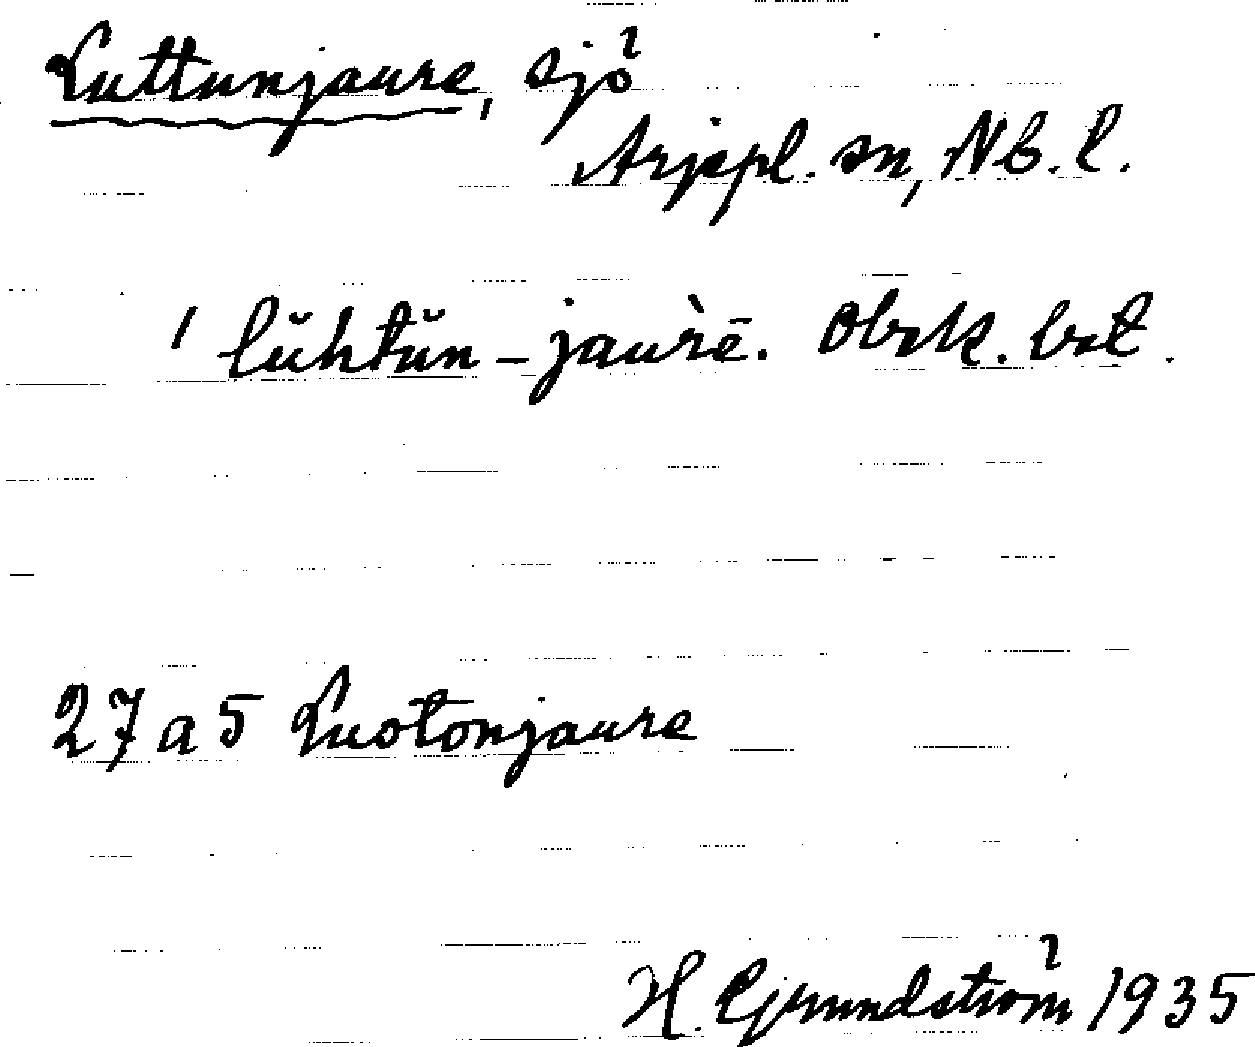 Luttunjaure, sjö
Arjepl. sn, Nb. l.
ˈlŭhtŭn-jaurē. Obrk. bet.
27 a 5 Luotonjaure
H. Grundström 1935